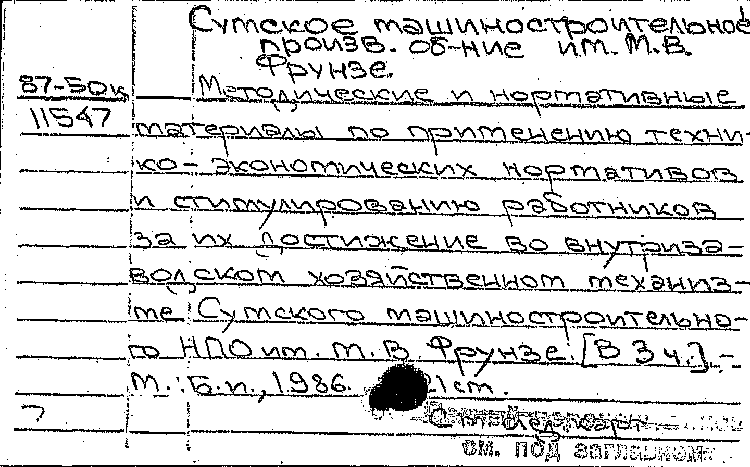 Сумское машиностроительное
произв. об-ние им. М.В.
Фрунзе.
87-50к Методические и нормативные
11547 материалы по применению техни-
ко-экономических нормативов
и стимулированию работников
за их достижение во внутриза-
водском хозяйственном механиз-
ме Сумского машиностроительно-
го НПО им. М.В. Фрунзе. [В 3 ч.]. -
М.: Б.и., 1986. 21 см.
см. под заглавием